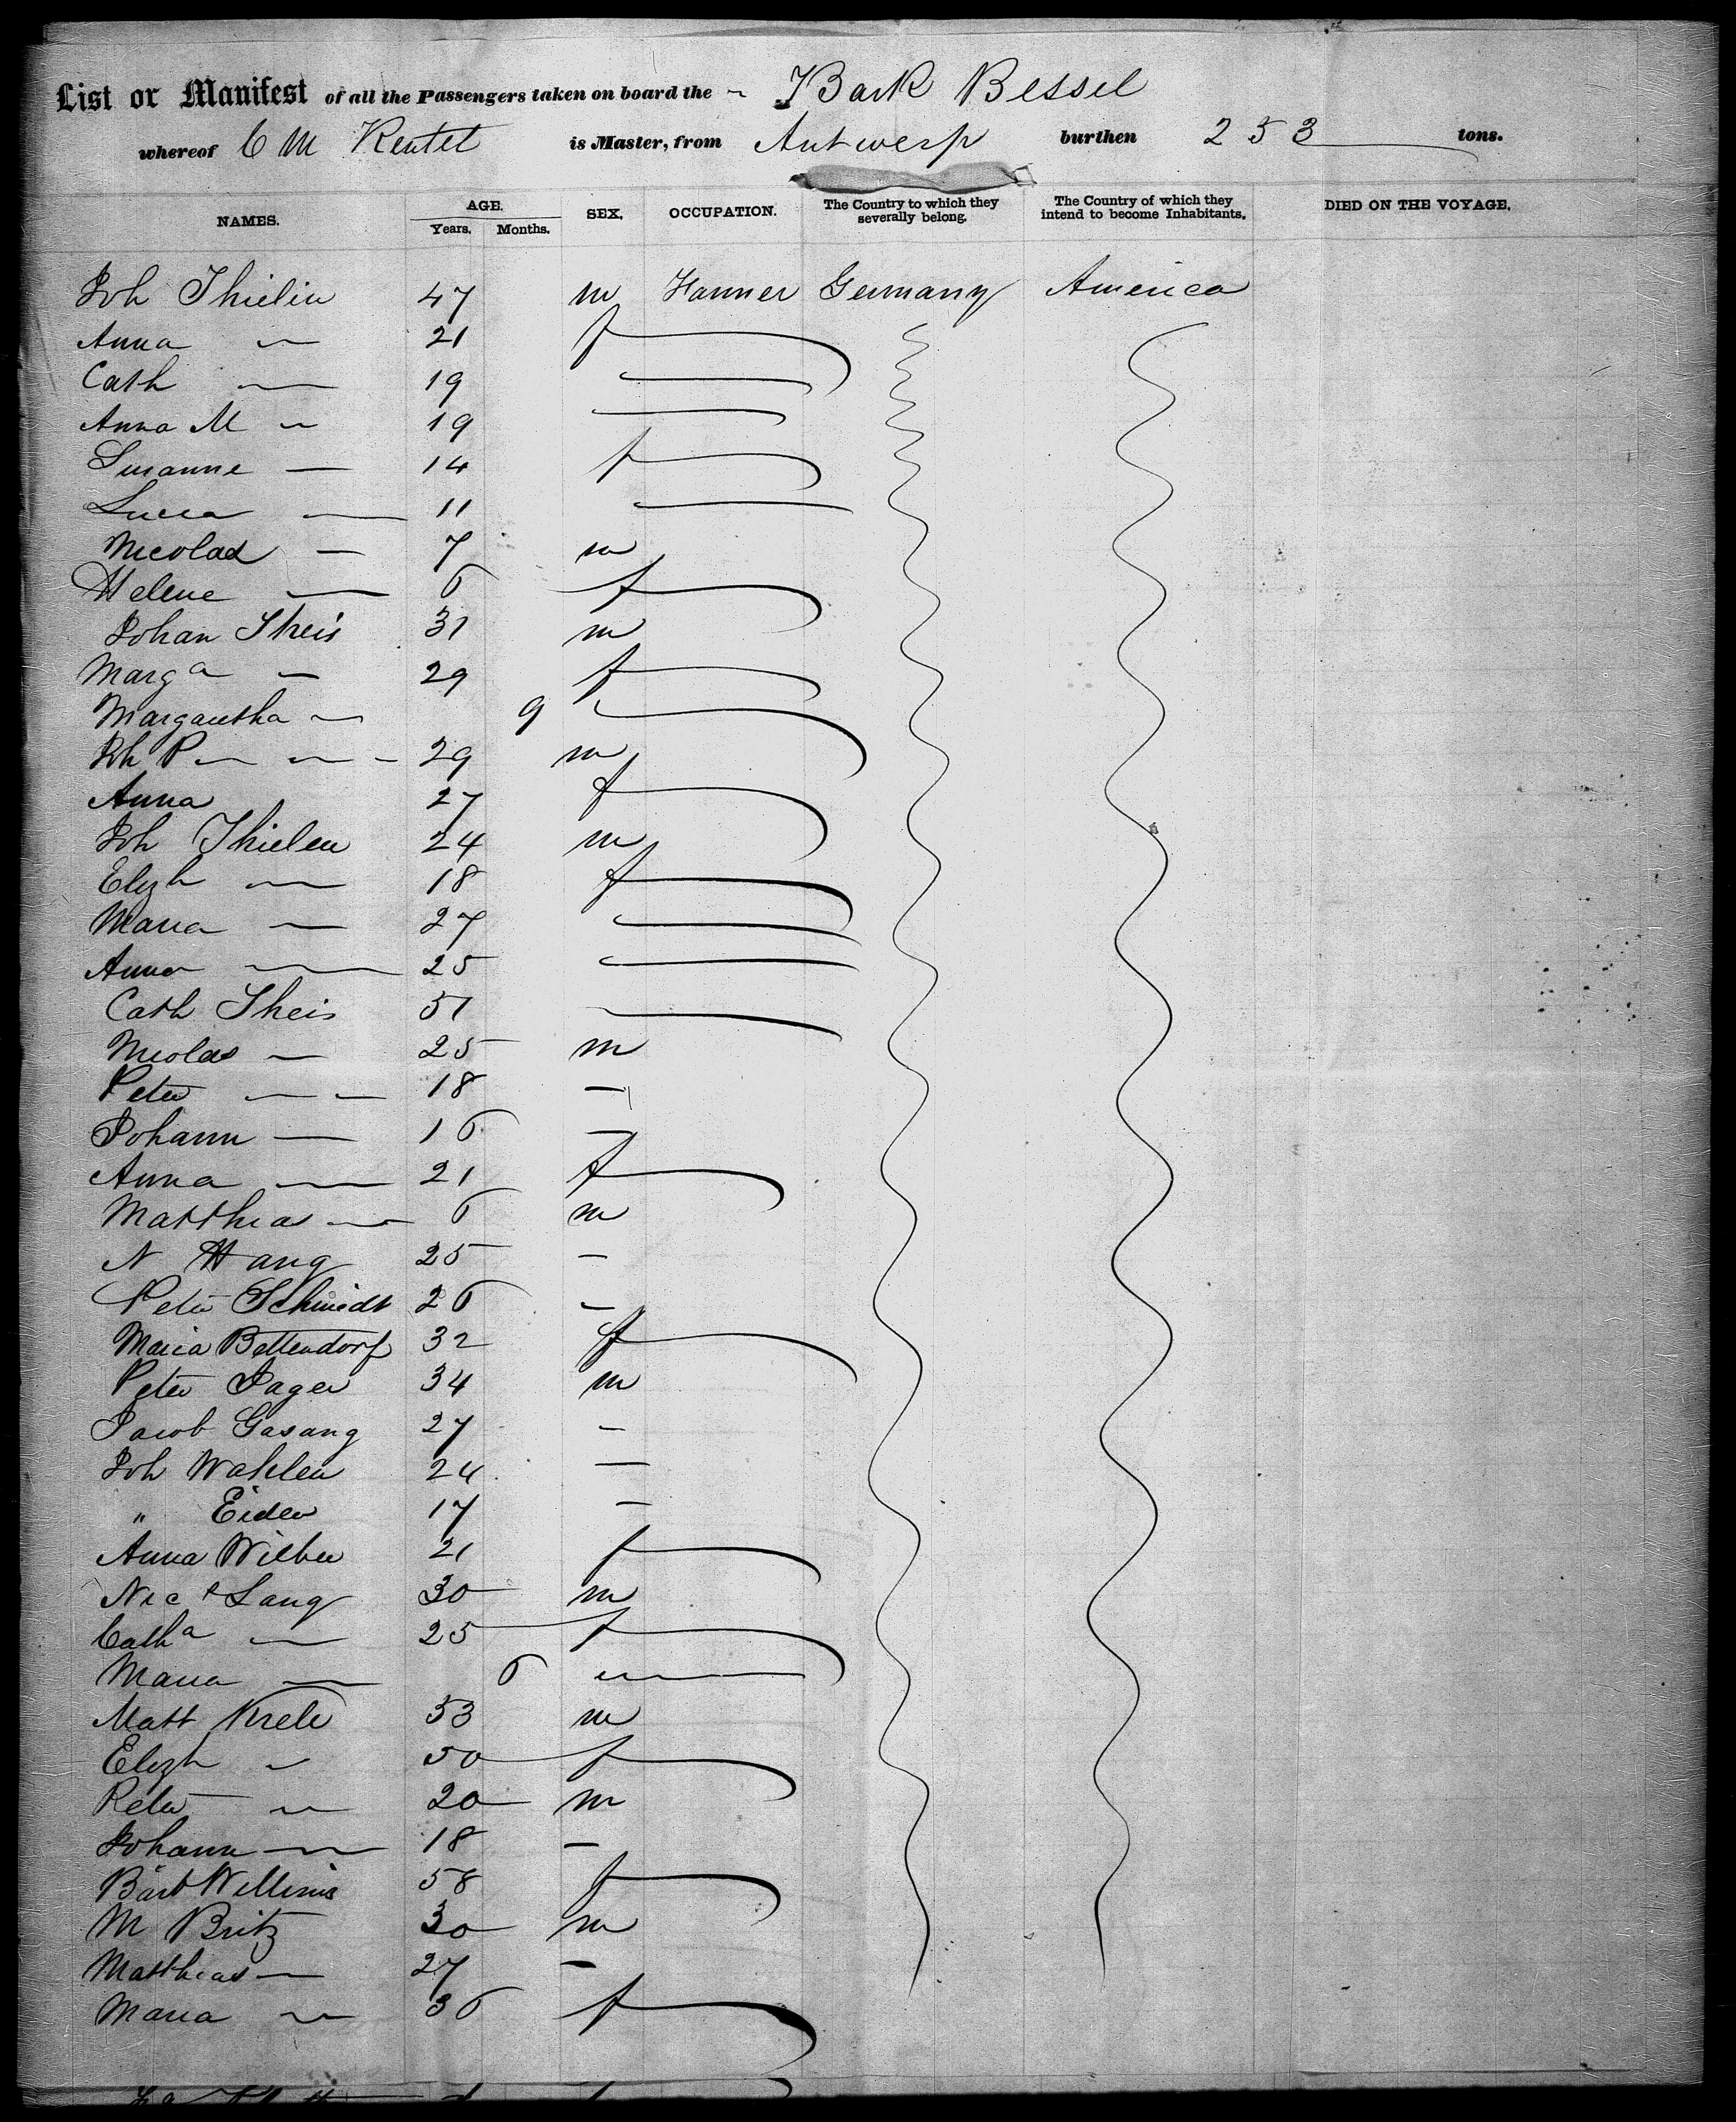 List or Manifest of all the Passengers taken on board the ~ Bark Bessel
whereof C M Kentel is Master, from Antwerp burthen 253 tons.
NAMES. AGE. Years. Months. SEX. OCCUPATION. The Country to which they severally belong. The Country of which they intend to become Inhabitants. DIED ON THE VOYAGE.
Joh Thielin 47 m Farmer Germany America
Anna — 21 f
Cath — 19
Anna M — 19
Susanne — 14 f
Lucia — 11
Nicolas — 7 m
Helene — 6 f
Johan Theis 31 m
Marga — 29 f
Margaretha — 9
Joh P — — 29 m
Anna 27 f
Joh Thielen 24 m
Elizh — 18 f
Maria — 27
Anna — 25
Cath Theis 51
Nicolas — 25 m
Peter — — 18 —
Johann — 16 —
Anna — 21 f
Matthias — 6 m
N Hang 25 —
Peter Schmidt 26 —
Maria Bettendorf 32 f
Peter Jager 34 m
Jacob Gasang 27 —
Joh Wahlen 24 —
" Eider 17 —
Anna Wilber 21 f
Nic Lang 30 m
Catha — 25 f
Maria — 6 —
Matt 53 m
Elizh — 50 f
Peter — 20 m
Johann — 18 —
Barb Willems 58 f
M Britz 30 m
Matthias — 27 —
Maria — 36 f